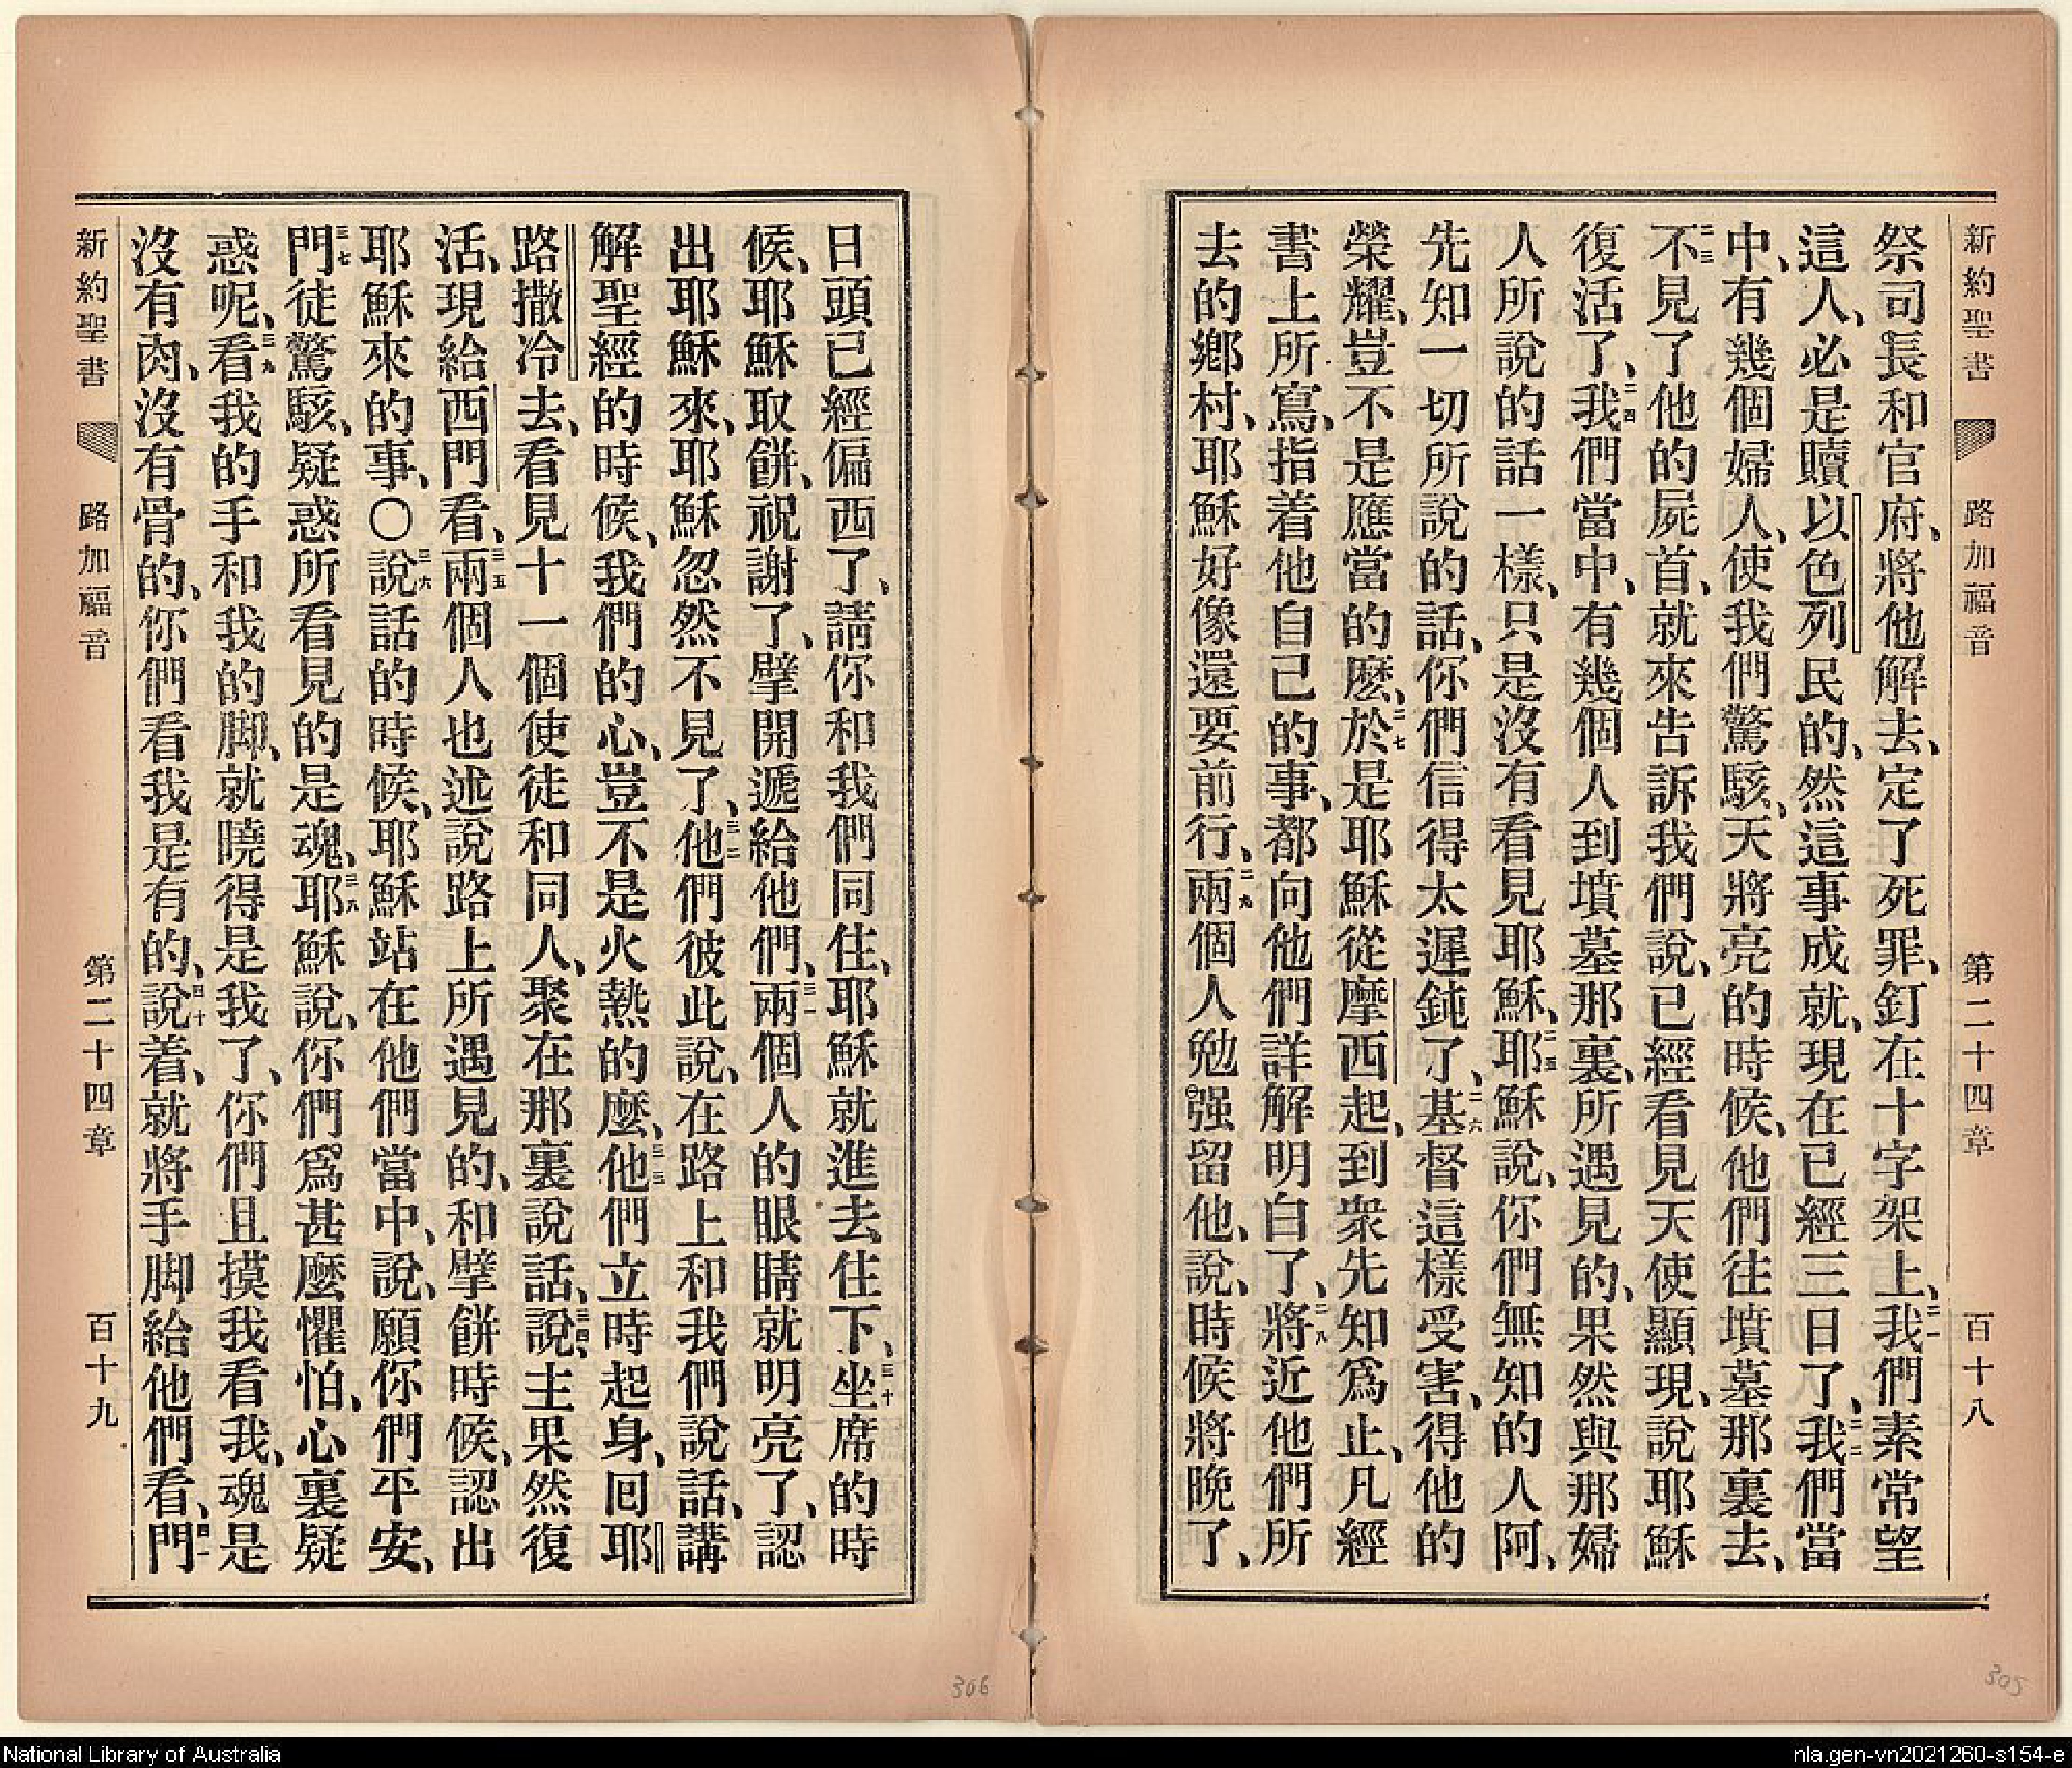 新約聖書 路加福音 第二十四章 百十八
祭司長和官府、將他解去、定了死罪、釘在十字架上、二一我們素常望
這人、必是贖以色列民的、然這事成就、現在已經三日了、二二我們當
中、有幾個婦人、使我們驚駭、天將亮的時候、他們往墳墓那裏去、
二三不見了他的屍首、就來告訴我們說、已經看見天使顯現、說耶穌
復活了、二四我們當中、有幾個人到墳墓那裏、所遇見的、果然與那婦
人所說的話一樣、只是沒有看見耶穌、二五耶穌說、你們無知的人阿、
先知一切所說的話、你們信得太遲鈍了、二六基督這樣受害、得他的
榮耀、豈不是應當的麼、二七於是耶穌從摩西起、到眾先知爲止、凡經
書上所寫、指着他自己的事、都向他們詳解明白了、二八將近他們所
去的鄉村、耶穌好像還要前行、二九兩個人勉强留他、說、時候將晚了、
日頭已經偏西了、請你和我們同住、耶穌就進去住下、三十坐席的時
候、耶穌取餅、祝謝了、擘開遞給他們、三一兩個人的眼睛就明亮了、認
出耶穌來、耶穌忽然不見了、三二他們彼此說、在路上和我們說話、講
解聖經的時候、我們的心、豈不是火熱的麼、三三他們立時起身、回耶
路撒冷去、看見十一個使徒和同人、聚在那裏說話、三四說、主果然復
活、現給西門看、三五兩個人也述說路上所遇見的、和擘餅時候、認出
耶穌來的事、〇三六說話的時候、耶穌站在他們當中、說、願你們平安、
三七門徒驚駭、疑惑所看見的是魂、三八耶穌說、你們爲甚麼懼怕、心裏疑
惑呢、三九看我的手和我的脚、就曉得是我了、你們且摸我看我、魂是
沒有肉、沒有骨的、你們看我是有的、四十說着、就將手脚給他們看、四一門
新約聖書 路加福音 第二十四章 百十九
306
305
National Library of Australia
nla.gen-vn2021260-s154-e